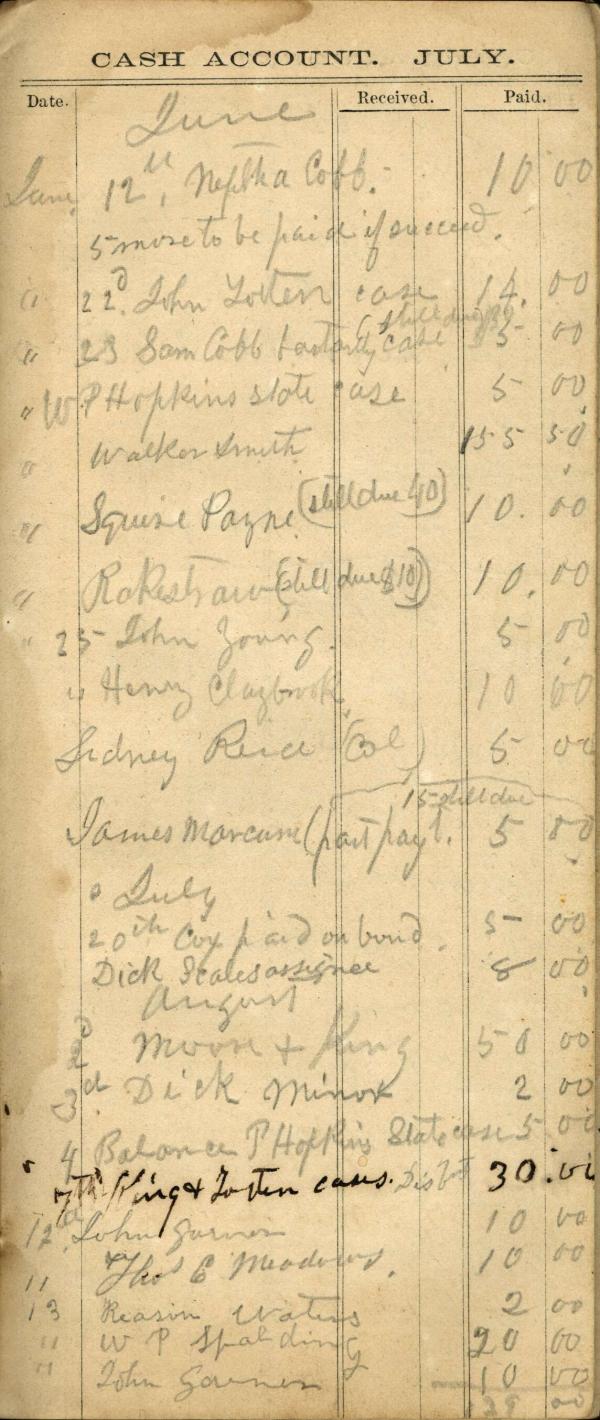 CASH ACCOUNT. JULY.
Date. Received. Paid.
June
June 12th, Neptha Cobb. 10 00
5 more to be paid if succeed.
" 22d. John Toten case 14. 00
(still due
" 23 Sam Cobb bastardy case 5 00
" W P Hopkins state case 5 00
" Walker Smith 155 50
" Squire Payne (still due 40) 10. 00
" Rakestraw (still due $10) 10. 00
" 25 John Young. 5 00
" Henry Claybrook 10 00
Sidney Reid (Col) 5 00
15 still due
James Marcum (part payt. 5 00
July
20th Cox paid on bond. 5 00
Dick Scales assignee 8 00
August
2d Moore & King 50 00
3d Dick Minor 2 00
4 Balance P Hopkins State case 5 00
7th King & Toten cases. Disbt 30.00
12th John Garner 10 00
" Thos E Meadows. 10 00
13 Reason Waters 2 00
" W P Spalding 20 00
" John Garner 10 00
00